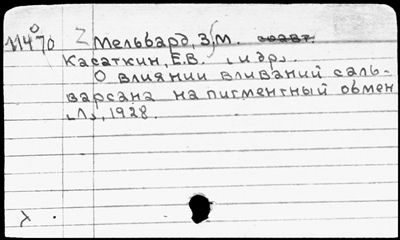 11470 Мельбард, З.М.
Касаткин, Е.В. [и др].
О влиянии вливаний саль-
варсана на пигментный обмен
[Л], 1928.